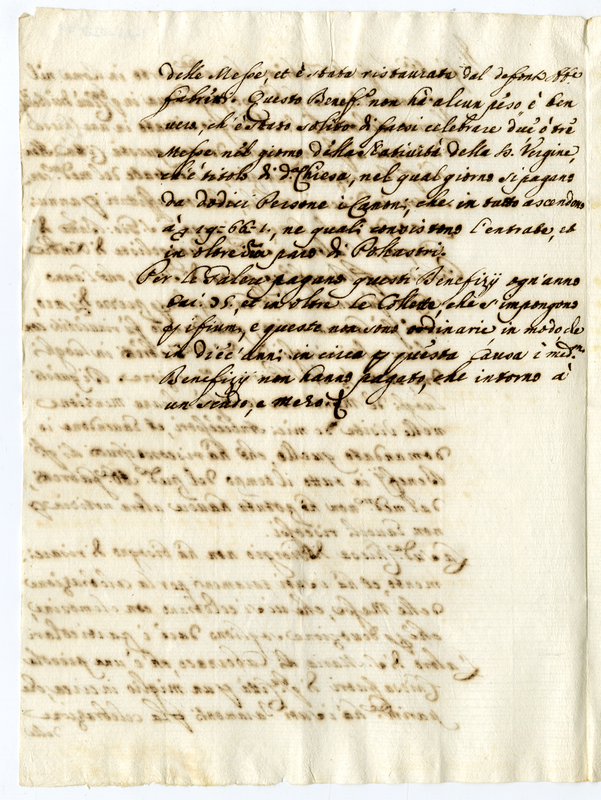 delle Messe, et è stata ristaurata dal defont. Abbe
fabritij. Questo Benef.º non hà alcun peso è ben
vero, ch'è stato solito di farsi celebrare due ò trè
Messe nel giorno della Natività della B. Vergine,
ch'è titolo di d.ª Chiesa, nel qual giorno si pagano
da dodici Persone i Canoni, che in tutto ascendono
à ne quali consistono l'entrate, et
in oltre un paro di Pollastri.
Per le Galere pagano questi Benefizij ogn'anno
bai: 36, et in oltre le Collette, che s'impongono
p i fiumi, e queste non sono ordinarie, in modo che
in dieci anni in circa p questa Causa i med.mi
Benefizij non hanno pagato, che intorno à
un scudo, e mezo.